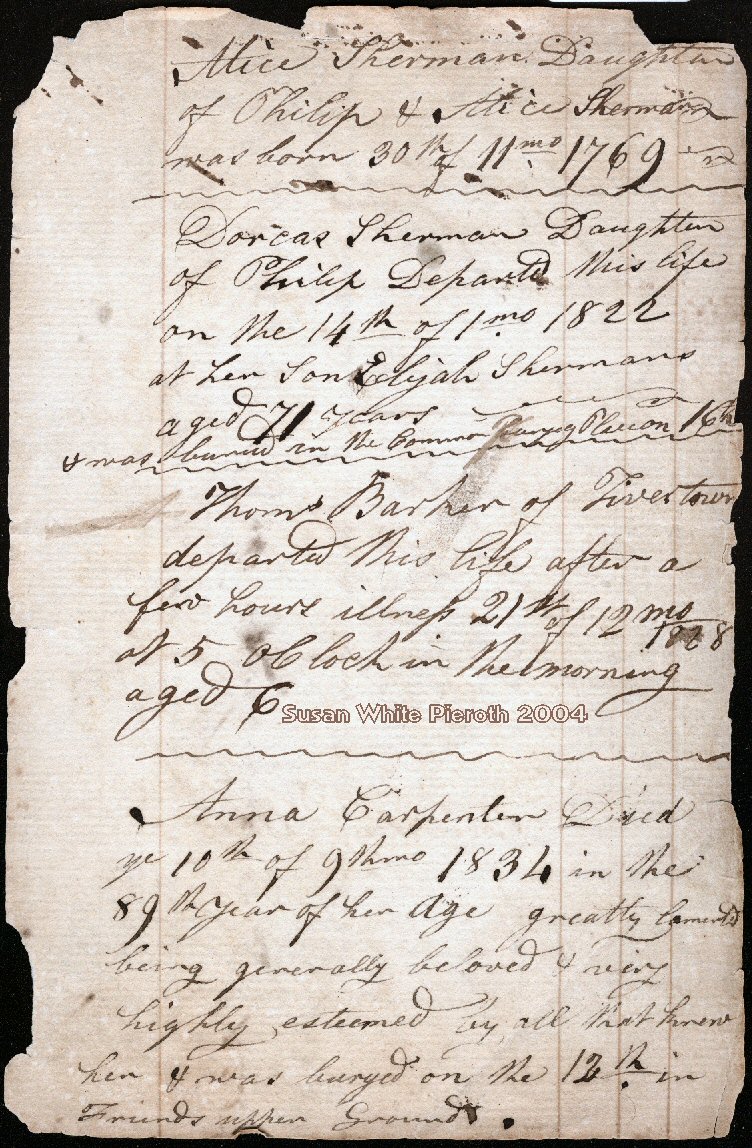 Alice Sherman Daughter
of Philip & Alice Sherman
was born 30th of 11mo 1769
Dorcas Sherman Daughter
of Philip Departed this life
on the 14th of 1mo 1822
at her Son Elijah Shermans
aged 71 years
& was buried in the Common on 16th
Thoms Barker of Tivertown
departed this life after a
few hours illness 21st of 12mo
1828
at 5 oClock in the morning
aged 6
Susan White Pieroth 2004
Anna Carpenter Died
ye 10th of 9thmo 1834 in the
89th year of her Age greatly lamented
being generally beloved & very
highly esteemed by all that knew
her & was buryed on the 12th in
Friends upper Ground